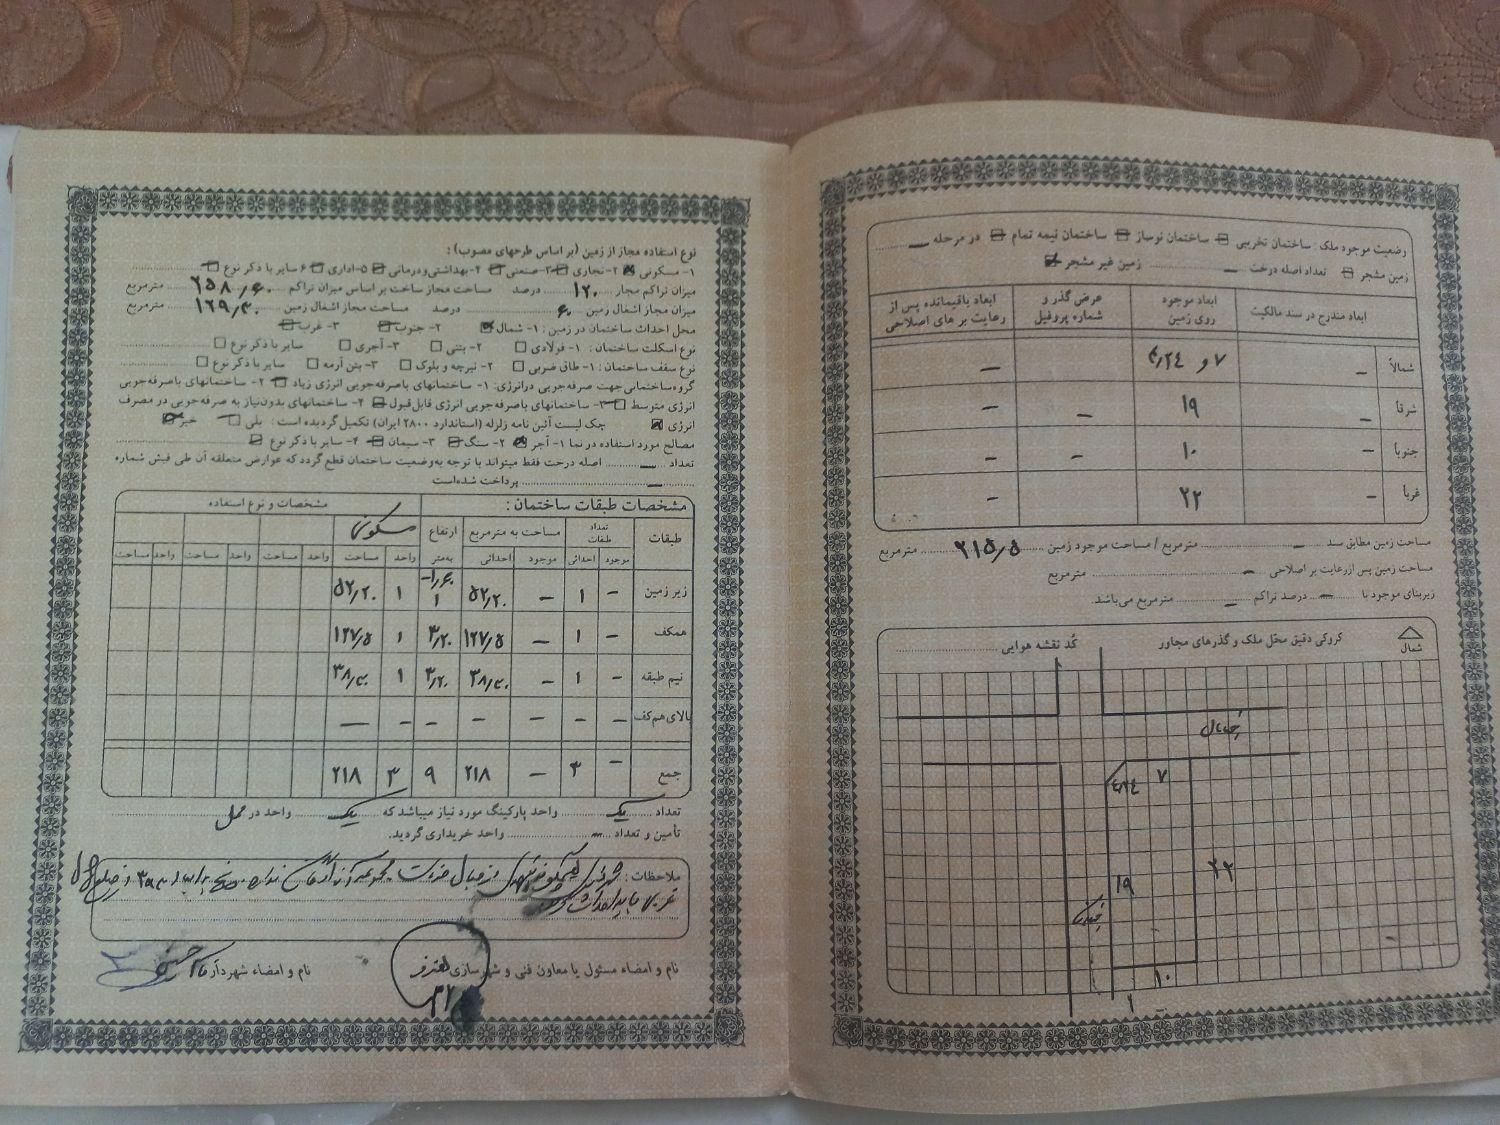 وضعیت موجود ملک : ساختمان تخریبی ساختمان نوساز ساختمان نیمه تمام در مرحله
زمین مشجر تعداد اصله درخت زمین غیر مشجر
ابعاد مندرج در سند مالکیت
ابعاد موجود روی زمین
عرض گذر و شماره پروفیل
ابعاد باقیمانده پس از رعایت بر های اصلاحی
شمالاً – ۷ و ۴/۲۴ –
شرقاً – ۱۹ – –
جنوباً – ۱۰ – –
غرباً – ۲۲ –
مساحت زمین مطابق سند – مترمربع / مساحت موجود زمین ۲۱۵/۵ مترمربع
مساحت زمین پس از رعایت بر اصلاحی – مترمربع
زیربنای موجود با – درصد تراکم – مترمربع می‌باشد.
شمال
کروکی دقیق محل ملک و گذرهای مجاور
کُد نقشه هوایی
خیابان
۷
۴/۲۴
۲۲
۱۹
خیابان
۱۰
نوع استفاده مجاز از زمین (بر اساس طرحهای مصوب) :
۱- مسکونی ۲- تجاری ۳- صنعتی ۴- بهداشتی و درمانی ۵- اداری ۶ سایر با ذکر نوع
میزان تراکم مجاز ۱۲۰ درصد مساحت مجاز ساخت بر اساس میزان تراکم ۲۵۸/۶۰ مترمربع
میزان مجاز اشغال زمین ۶۰ درصد مساحت مجاز اشغال زمین ۱۲۹/۳۰ مترمربع
محل احداث ساختمان در زمین : ۱- شمال ۲- جنوب ۳- غرب
نوع اسکلت ساختمان : ۱- فولادی ۲- بتنی ۳- آجری سایر با ذکر نوع
نوع سقف ساختمان : ۱- طاق ضربی ۲- تیرچه و بلوک ۳- بتن آرمه سایر با ذکر نوع
گروه ساختمانی جهت صرفه‌جویی در انرژی: ۱- ساختمانهای با صرفه‌جویی انرژی زیاد ۲- ساختمانهای باصرفه‌جویی
انرژی متوسط ۳- ساختمانهای باصرفه‌جویی انرژی قابل قبول ۴- ساختمانهای بدون نیاز به صرفه‌جویی در مصرف
انرژی چک لیست آئین نامه زلزله (استاندارد ۲۸۰۰ ایران) تکمیل گردیده است : بلی خیر
مصالح مورد استفاده در نما ۱- آجر ۲- سنگ ۳- سیمان ۴- سایر با ذکر نوع
تعداد – اصله درخت فقط میتواند با توجه به وضعیت ساختمان قطع گردد که عوارض متعلقه آن طی فیش شماره
– پرداخت شده است
مشخصات طبقات ساختمان : مشخصات و نوع استفاده
طبقات تعداد طبقات مساحت به مترمربع ارتفاع به‌متر مسکونی
موجود احداثی موجود احداثی واحد مساحت واحد مساحت واحد مساحت واحد مساحت
زیر زمین – ۱ – ۵۲/۲۰ ۱ ۵۲/۲۰
همکف – ۱ – ۱۲۷/۵ ۳/۲۰ ۱ ۱۲۷/۵
نیم طبقه – ۱ – ۳۸/۳۰ ۳/۲۰ ۱ ۳۸/۳۰
بالای هم کف – – – – – – —
جمع – ۳ – ۲۱۸ ۹ ۳ ۲۱۸
تعداد یک واحد پارکینگ مورد نیاز میباشد که یک واحد در محل
تأمین و تعداد – واحد خریداری گردید.
ملاحظات :
نام و امضاء مسئول یا معاون فنی و شهرسازی
نام و امضاء شهردار